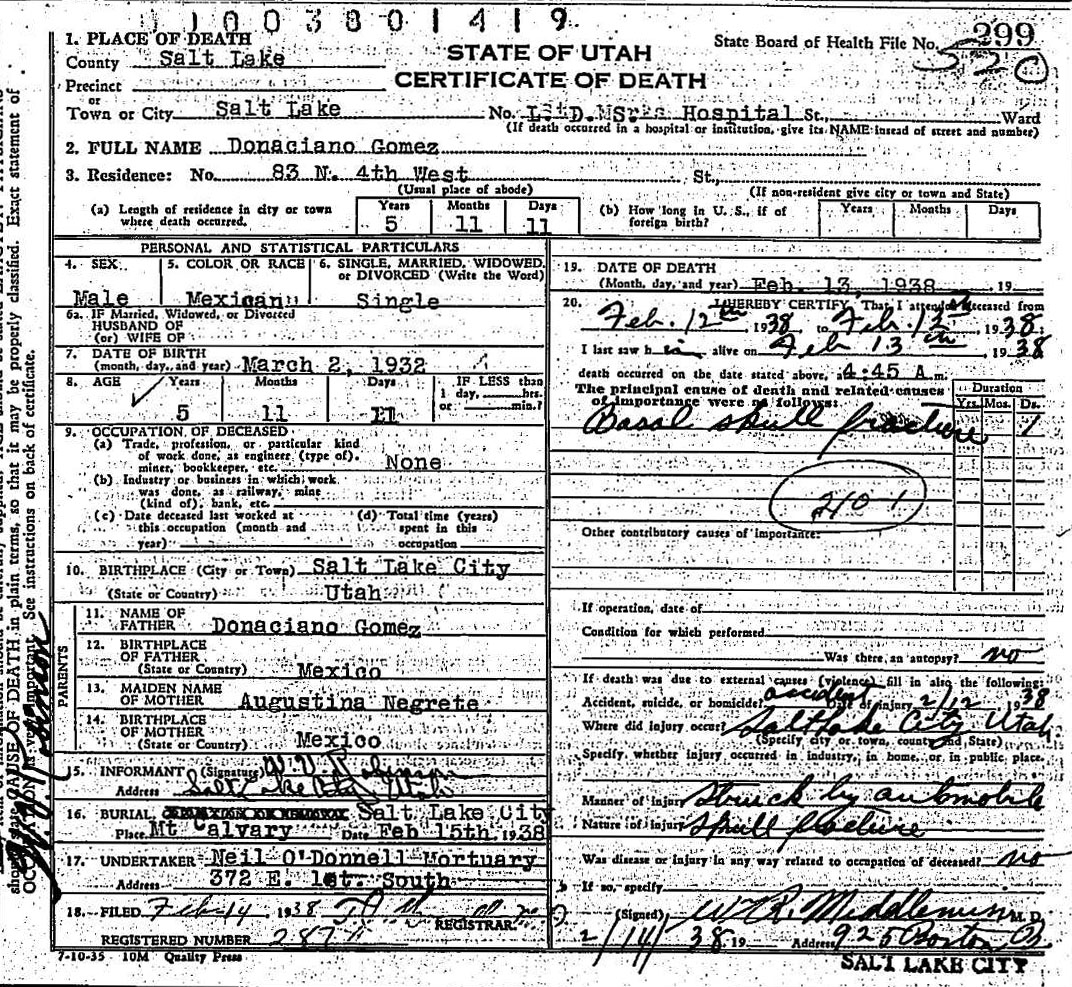 1003801419
1. PLACE OF DEATH
County Salt Lake
Precinct
or
Town or City Salt Lake
STATE OF UTAH
CERTIFICATE OF DEATH
State Board of Health File No. 299
520
No. Hospital St., Ward
(If death occurred in a hospital or institution, give its NAME instead of street and number)
2. FULL NAME Donaciano Gomez
3. Residence: No. 83 N. 4th West St.,
(Usual place of abode) (If non-resident give city or town and State)
(a) Length of residence in city or town where death occurred. Years 5 Months 11 Days 11
(b) How long in U. S., if of foreign birth? Years Months Days
PERSONAL AND STATISTICAL PARTICULARS
4. SEX Male
5. COLOR OR RACE Mexican
6. SINGLE, MARRIED, WIDOWED, or DIVORCED (Write the Word) Single
6a. IF Married, Widowed, or Divorced
HUSBAND OF
(or) WIFE OF
7. DATE OF BIRTH
(month, day, and year) March 2, 1932
8. AGE Years 5 Months 11 Days 11 IF LESS than 1 day, hrs. or min.?
9. OCCUPATION OF DECEASED
(a) Trade, profession, or particular kind
of work done, as engineer (type of),
miner, bookkeeper, etc. None
(b) Industry or business in which work
was done, as railway, mine
(kind of), bank, etc.
(c) Date deceased last worked at this occupation (month and year)
(d) Total time (years) spent in this occupation
10. BIRTHPLACE (City or Town) Salt Lake City
(State or Country) Utah
PARENTS
11. NAME OF
FATHER Donaciano Gomez
12. BIRTHPLACE
OF FATHER
(State or Country) Mexico
13. MAIDEN NAME
OF MOTHER Augustina Negrete
14. BIRTHPLACE
OF MOTHER
(State or Country) Mexico
15. INFORMANT (Signature)
Address Salt Lake City Utah
16. BURIAL, Salt Lake City
Place Mt Calvary Date Feb 15th, 1938
17. UNDERTAKER Neil O'Donnell Mortuary
Address 372 E. 1st. South
18. FILED Feb 14, 1938
REGISTRAR
REGISTERED NUMBER 287
7-10-35 10M Quality Press
19. DATE OF DEATH
(Month, day, and year) Feb. 13, 1938 19
20. I HEREBY CERTIFY, That I attended deceased from
Feb. 12th 1938, to Feb. 13th, 1938.
I last saw him alive on Feb 13th, 1938
death occurred on the date stated above, at 4:45 A m.
The principal cause of death and related causes
of importance were as follows:
Duration
Yrs. Mos. Ds.
Basal skull fracture 1
210 1
Other contributory causes of importance:
If operation, date of
Condition for which performed
Was there an autopsy? no
If death was due to external causes (violence) fill in also the following:
Accident, suicide, or homicide? accident Date of injury 2/12 1938
Where did injury occur? Salt Lake City Utah
(Specify city or town, county and State)
Specify whether injury occurred in industry, in home, or in public place.
Manner of injury Struck by automobile
Nature of injury Skull fracture
Was disease or injury in any way related to occupation of deceased? no
If so, specify
(Signed) M. D.
2/14/38 19 Address 925 Boston B
SALT LAKE CITY